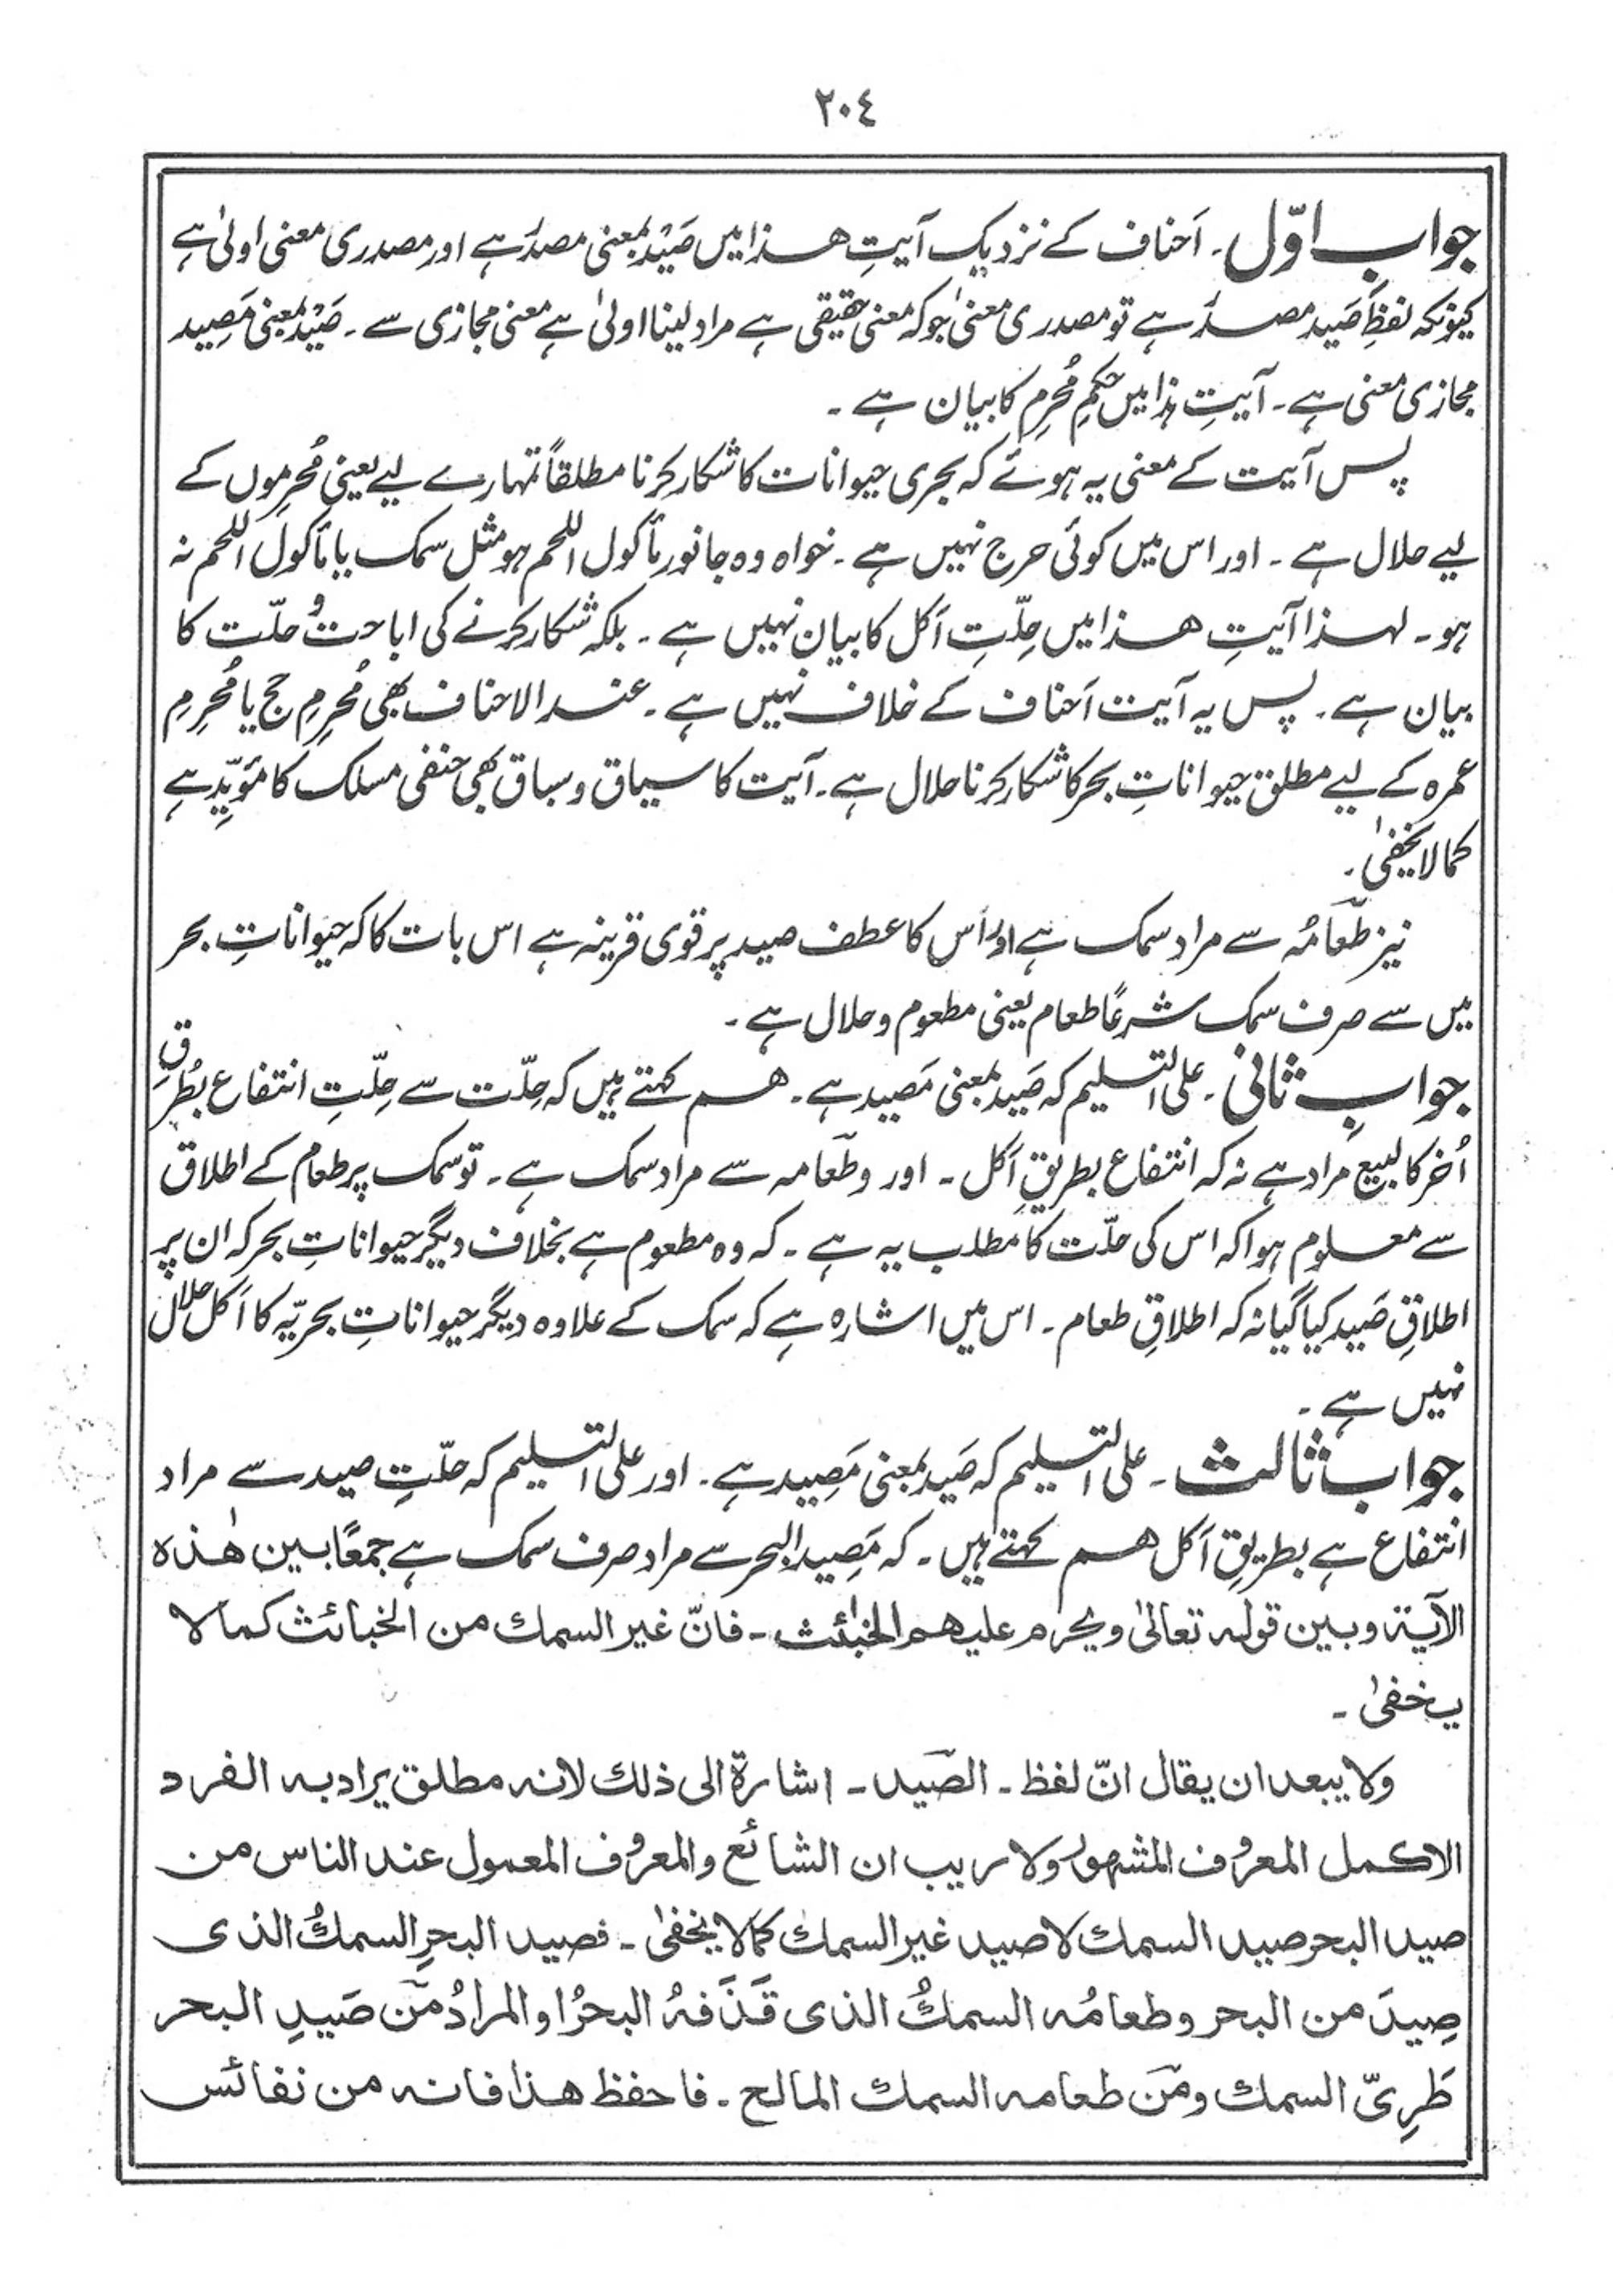 ٢٠٤
جواب اوّل ۔ اَحناف کے نزدیک آیتِ ھذا میں صَیْد بمعنی مصدر ہے اور مصدری معنی اولیٰ ہے
کیونکہ لفظِ صَید مصدر ہے تو مصدری معنیٰ جوکہ معنی حقیقی ہے مراد لینا اولیٰ ہے معنی مجازی سے ۔ صَیْد بمعنی مَصِید
مجازی معنی ہے ۔ آیتِ ہٰذا میں حکمِ مُحرِم کا بیان ہے ۔
پس آیت کے معنی یہ ہوئے کہ بحری حیوانات کا شکار کرنا مطلقاً تمہارے لیے یعنی مُحرِموں کے
لیے حلال ہے ۔ اور اس میں کوئی حرج نہیں ہے ۔ خواہ وہ جانور مأکول اللحم ہو مثل سمک یا مأکول اللحم نہ
ہو ۔ لہذا آیتِ ھذا میں حِلّتِ اَکل کا بیان نہیں ہے ۔ بلکہ شکار کرنے کی اباحت و حلّت کا
بیان ہے ۔ پس یہ آیت اَحناف کے خلاف نہیں ہے ۔ عند الاحناف بھی مُحرِمِ حج یا مُحرِمِ
عمرہ کے لیے مطلق حیواناتِ بحر کا شکار کرنا حلال ہے ۔ آیت کا سیاق و سباق بھی حنفی مسلک کا مُؤیِّد ہے
کما لا یخفیٰ ۔
نیز طَعَامُہ سے مراد سمک ہے اور اُس کا عطف صید پر قوی قرینہ ہے اس بات کا کہ حیواناتِ بحر
میں سے صرف سمک شرعًا طعام یعنی مطعوم و حلال ہے ۔
جوابِ ثانی ۔ علی التسلیم کہ صَید بمعنی مَصید ہے ۔ ھم کہتے ہیں کہ حِلّت سے حِلّتِ انتفاع بطُرقِ
اُخر کالبیع مراد ہے نہ کہ انتفاع بطریقِ اَکل ۔ اور وطَعامہ سے مراد سمک ہے ۔ تو سمک پر طعام کے اطلاق
سے معلوم ہوا کہ اس کی حلّت کا مطلب یہ ہے ۔ کہ وہ مطعوم ہے بخلاف دیگر حیواناتِ بحر کہ ان پر
اطلاقِ صَید کیا گیا نہ کہ اطلاقِ طعام ۔ اس میں اشارہ ہے کہ سمک کے علاوہ دیگر حیواناتِ بحریّہ کا اَکل حلال
نہیں ہے ۔
جواب ثالث ۔ علی التسلیم کہ صَید بمعنی مَصِید ہے ۔ اور علی التسلیم کہ حلّتِ صید سے مراد
انتفاع ہے بطریقِ اَکل ھم کہتے ہیں ۔ کہ مَصِید البحر سے مراد صرف سمک ہے جمعًا بین ھٰذہ
الآیۃ و بین قولہ تعالیٰ ویحرم علیھم الخبٰئث ۔ فانّ غیر السمك من الخبائث کما لا
یخفیٰ ۔
ولا یبعد ان یقال انّ لفظ ۔ الصّید ۔ اشارۃ الی ذلك لانہ مطلق یراد بہ الفرد
الاکمل المعروف المشہور ولا ریب ان الشائع والمعروف المعمول عند الناس من
صید البحر صید السمك لا صید غیر السمك کما لا یخفیٰ ۔ فصید البحرِ السمكُ الذی
صِیدَ من البحر وطعامُہ السمكُ الذی قَذَفہُ البحرُ او المرادُ مّن صَیدِ البحر
طَرِیّ السمك ومّن طعامہ السمك المالح ۔ فاحفظ ھذا فانہ من نفائس